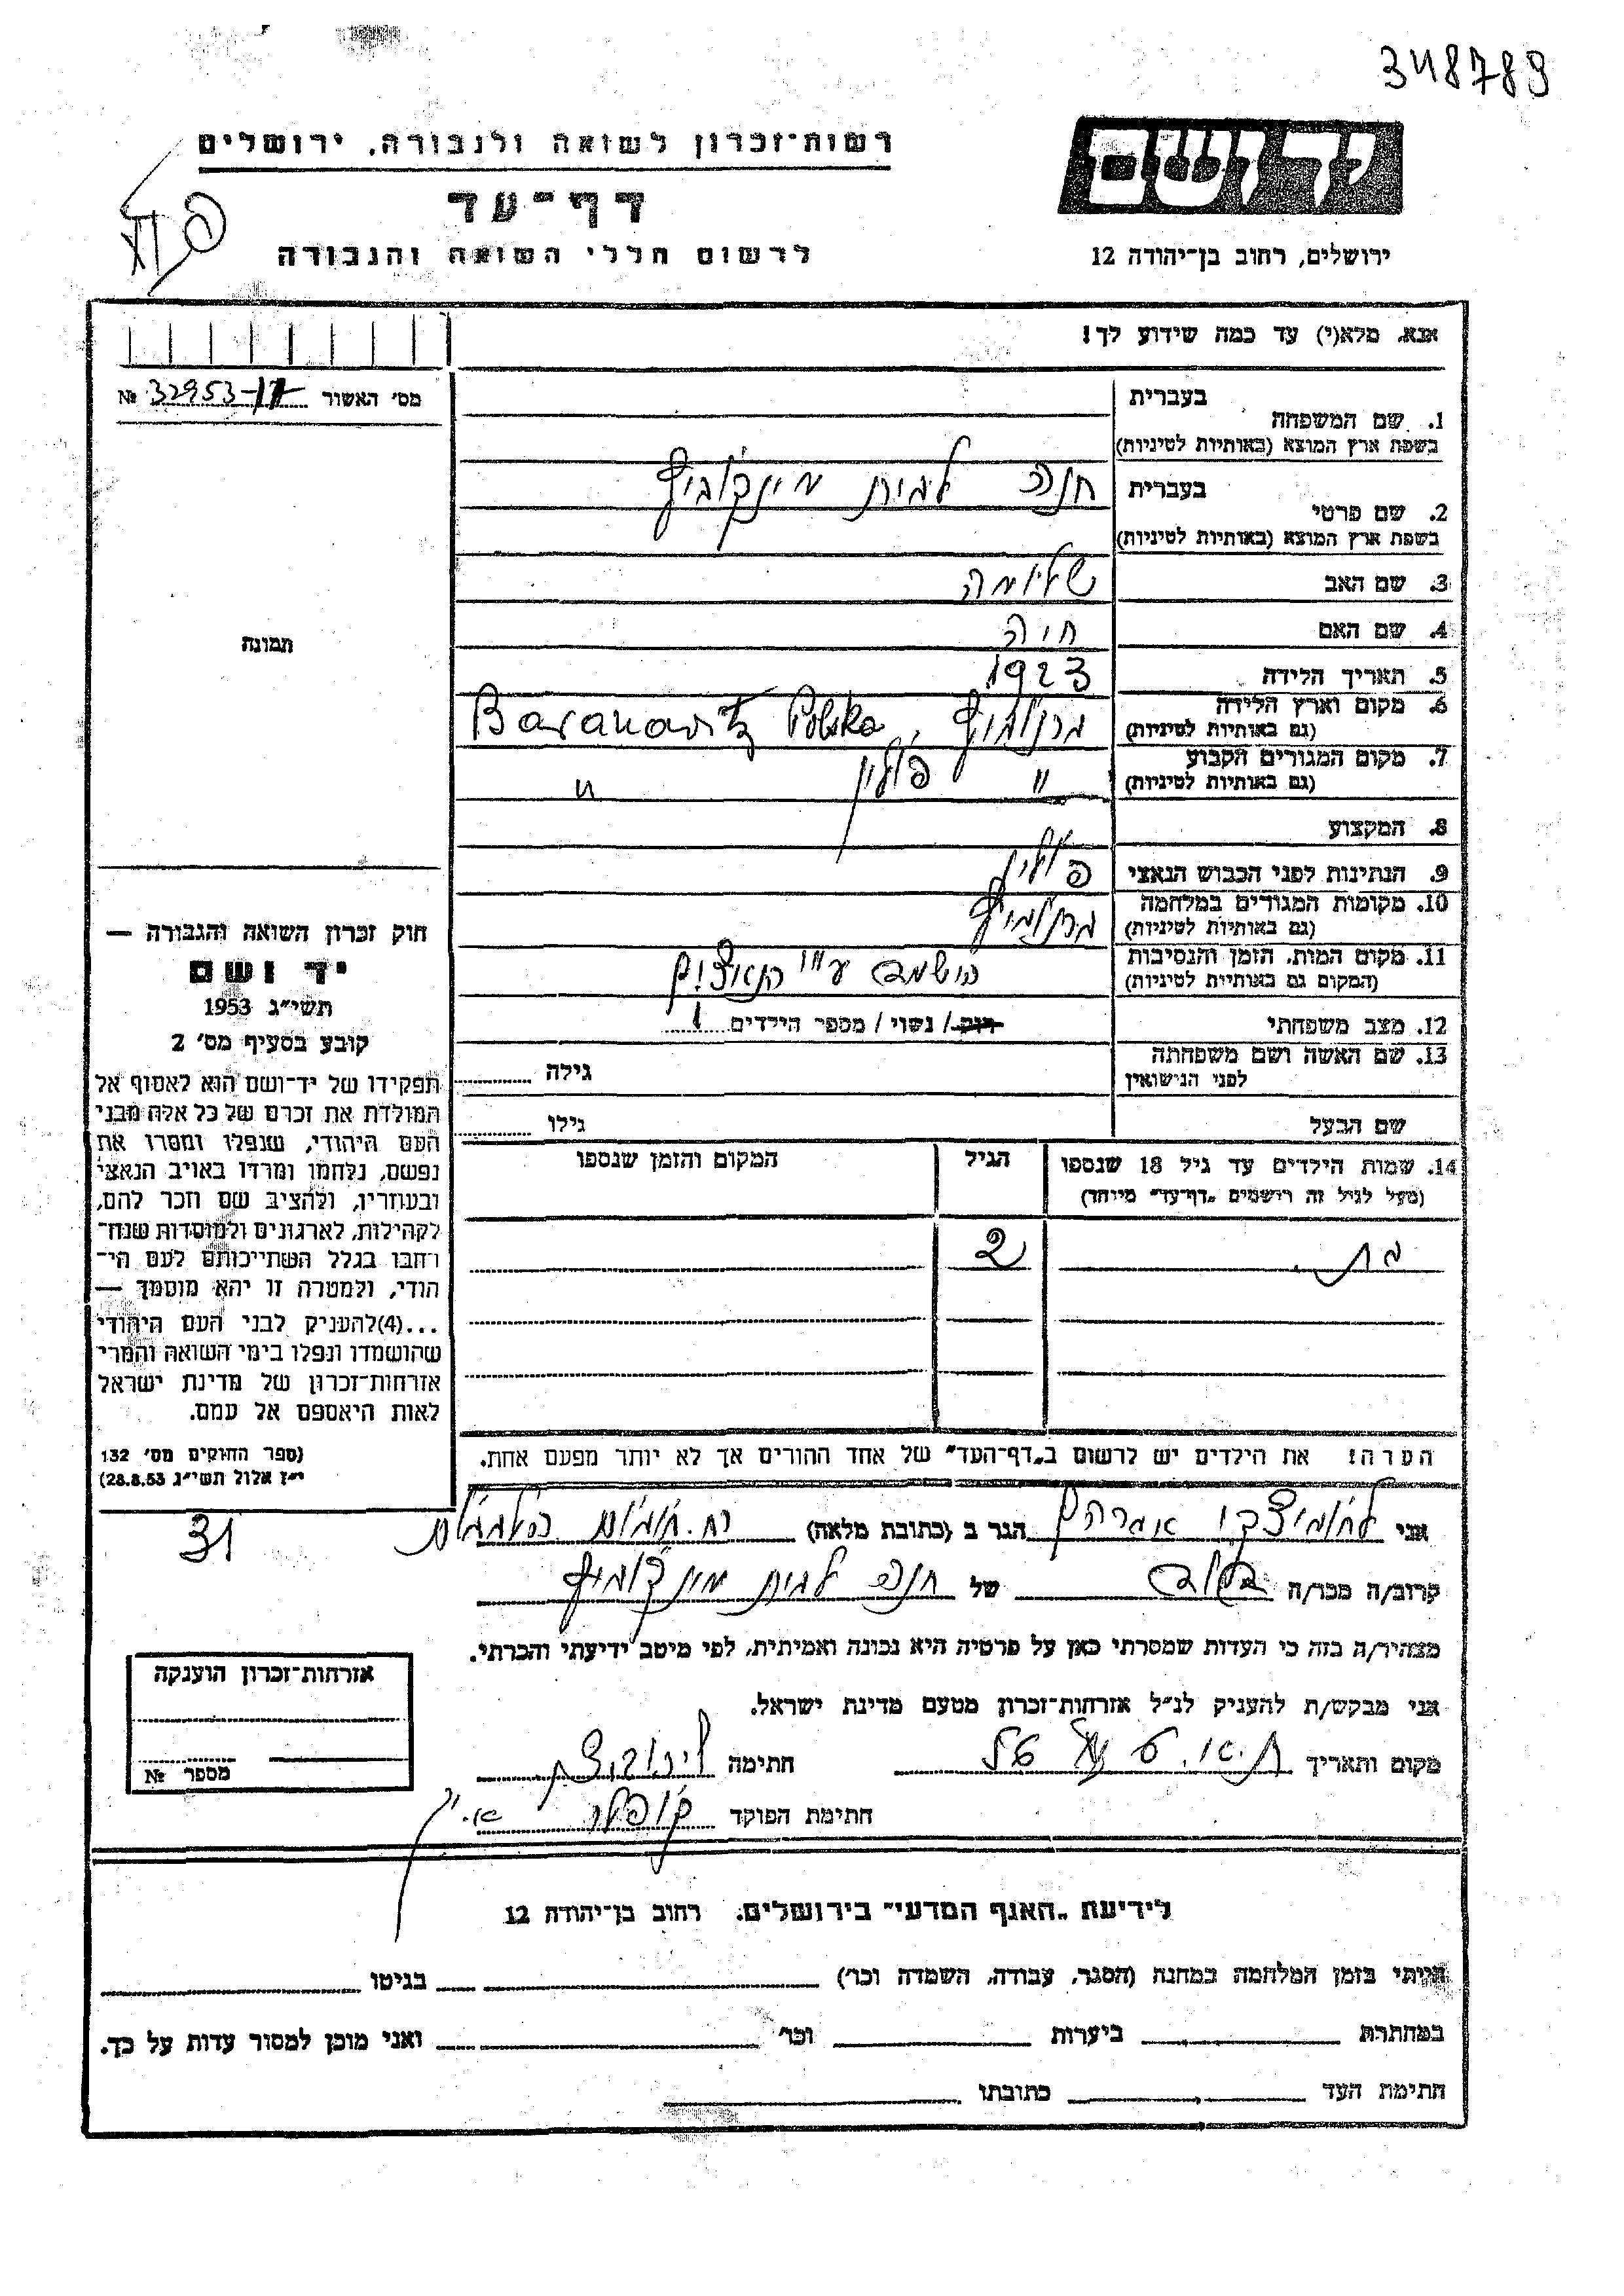 348789
רשות-זכרון לשואה ולגבורה, ירושלים
יד ושם
דף-עד
לרשום חללי השואה והגבורה
ירושלים, רחוב בן-יהודה 12
אנא, מלא(י) עד כמה שידוע לך!
מס' האשור 32953-17 №
בעברית
1. שם המשפחה
בשפת ארץ המוצא (באותיות לטיניות)
בעברית חנה לבית מינקוביץ
2. שם פרטי
בשפת ארץ המוצא (באותיות לטיניות)
3. שם האב שלומה
4. שם האם חיה
5. תאריך הלידה 1923
6. מקום וארץ הלידה ברנוביץ, Baranowitz Polska
(גם באותיות לטיניות)
7. מקום המגורים הקבוע " פולין "
(גם באותיות לטיניות)
8. המקצוע
9. הנתינות לפני הכבוש הנאצי פולין
10. מקומות המגורים במלחמה ברנוביץ
(גם באותיות לטיניות)
11. מקום המות, הזמן והנסיבות הושמדה ע"י הנאצים
(המקום גם באותיות לטיניות)
12. מצב משפחתי רווק / נשוי / מספר הילדים 1
13. שם האשה ושם משפחתה גילה
לפני הנישואין
שם הבעל גילו
14. שמות הילדים עד גיל 18 שנספו הגיל המקום והזמן שנספו
(מעל לגיל זה רושמים „דף-עד" מיוחד)
בת 2
הערה: את הילדים יש לרשום ב„דף-העד" של אחד ההורים אך לא יותר מפעם אחת.
תמונה
חוק זכרון השואה והגבורה —
יד ושם
תשי"ג 1953
קובע בסעיף מס' 2
תפקידו של יד-ושם הוא לאסוף אל
המולדת את זכרם של כל אלה מבני
העם היהודי, שנפלו ומסרו את
נפשם, נלחמו ומרדו באויב הנאצי
ובעוזריו, ולהציב שם וזכר להם,
לקהילות, לארגונים ולמוסדות שנח-
רבו בגלל השתייכותם לעם הי-
הודי, ולמטרה זו יהא מוסמך —
...(4)להעניק לבני העם היהודי
שהושמדו ונפלו בימי השואה והמרי
אזרחות-זכרון של מדינת ישראל
לאות היאספם אל עמם.
(ספר החוקים מס' 132
י"ז אלול תשי"ג 28.8.53)
אני אברהם הגר ב (כתובת מלאה) רח. 31
קרוב/ה מכר/ה של חנה לבית מינקוביץ
מצהיר/ה בזה כי העדות שמסרתי כאן על פרטיה היא נכונה ואמיתית, לפי מיטב ידיעתי והכרתי.
אני מבקש/ת להעניק לנ"ל אזרחות-זכרון מטעם מדינת ישראל.
מקום ותאריך ת"א. חתימה
חתימת הפוקד
אזרחות-זכרון הוענקה
מספר №
לידיעת „האגף המדעי" בירושלים, רחוב בן-יהודה 12
הייתי בזמן המלחמה במחנה (הסגר, עבודה, השמדה וכו') בגיטו
במחתרת ביערות וכו' ואני מוכן למסור עדות על כך.
חתימת העד כתובתו